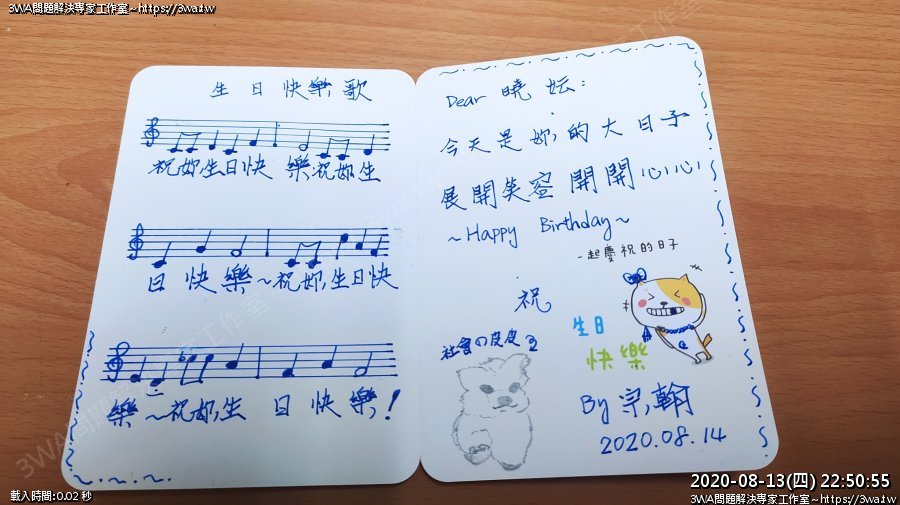 3WA問題解決專家工作室~https://3wa.tw
生日快樂歌
祝妳生日快樂祝妳生
日快樂~祝妳生日快
樂~祝妳生日快樂!
Dear 曉妘:
今天是妳的大日子
展開笑容開開心心
~Happy Birthday~
一起慶祝的日子
祝
生日
快樂
社會の皮皮
By 宗翰
2020.08.14
載入時間:0.02 秒
2020-08-13(四) 22:50:55
3WA問題解決專家工作室~https://3wa.tw